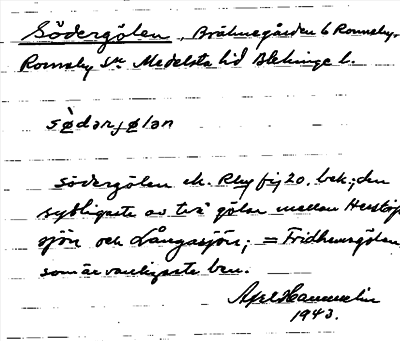 Södergölen, Brähnegården 6 Ronneby,
Ronneby sn Medelsta hd Blekinge l.
sø̀dərjølən
Södergölen ek. Rby fij 20. bek.; den
sydligaste av två gölar mellan Hurstorp
sjön och Långasjön; = Fridhemsgölen
som är vanligaste ben.
Axel Hammelin
1943.